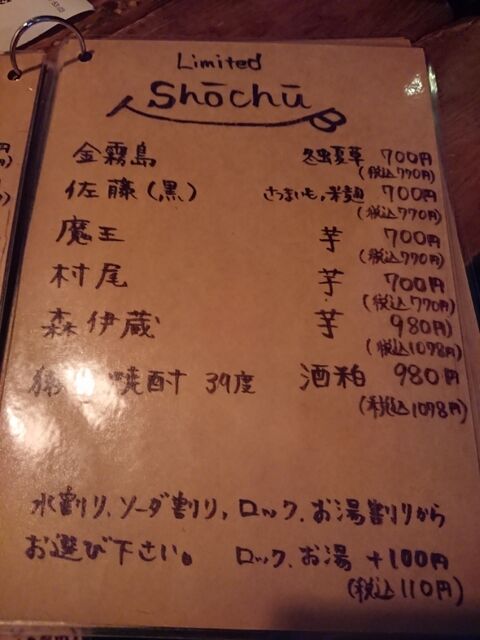 Limited
Shōchū
金霧島 冬虫夏草 700円
(税込770円)
佐藤(黒) さつまいも、米麹 700円
(税込770円)
魔王 芋 700円
(税込770円)
村尾 芋 700円
(税込770円)
森伊蔵 芋 980円
(税込1078円)
焼酎 39度 酒粕 980円
(税込1078円)
水割り、ソーダ割り、ロック、お湯割りから
お選び下さい。 ロック、お湯 +100円
(税込110円)